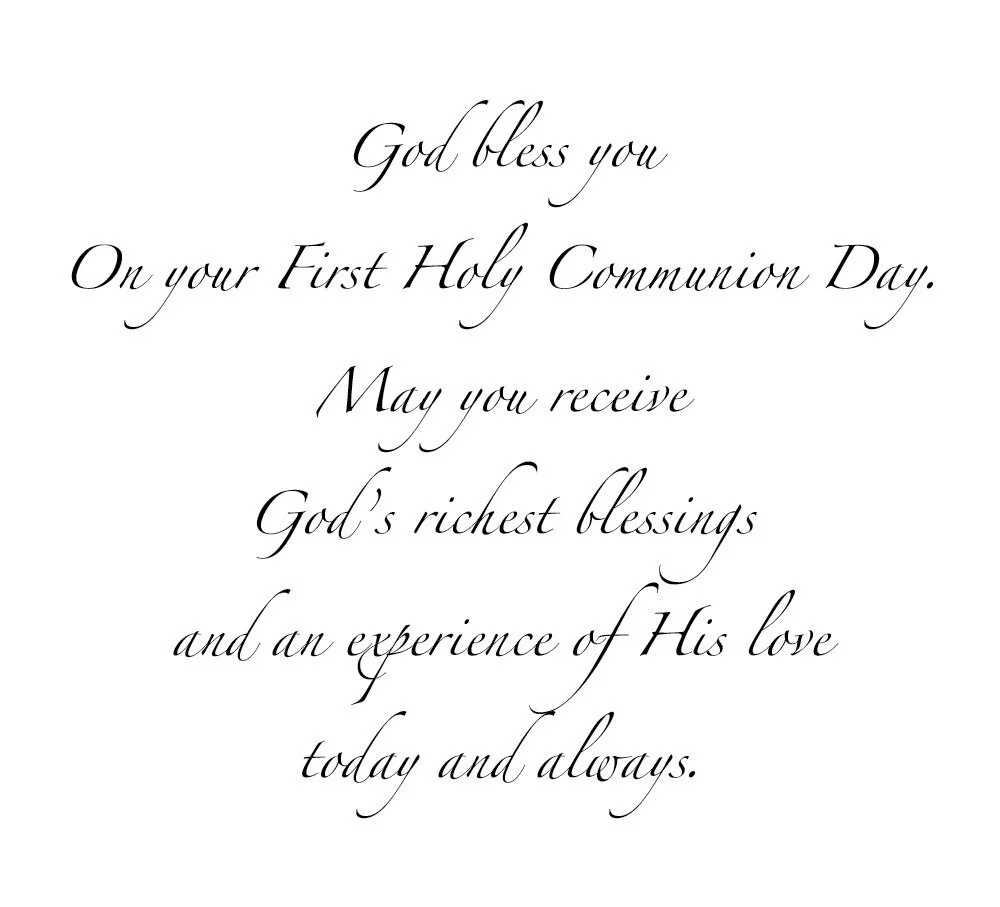 God bless you
On your First Holy Communion Day.
May you receive
God's richest blessings
and an experience of His love
today and always.